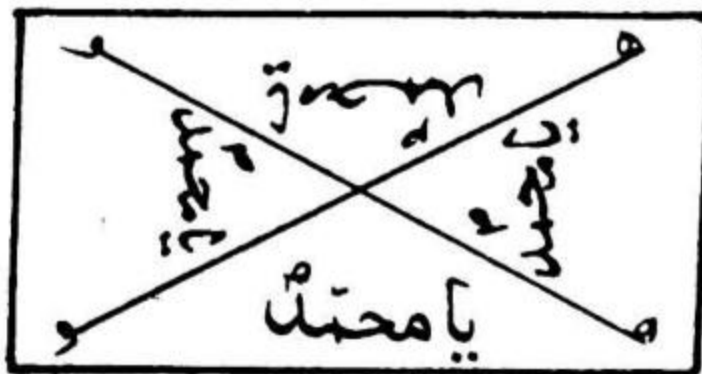 ه
و
يا محمد
يا محمد
يا محمد
يا محمدٌ
ه
و